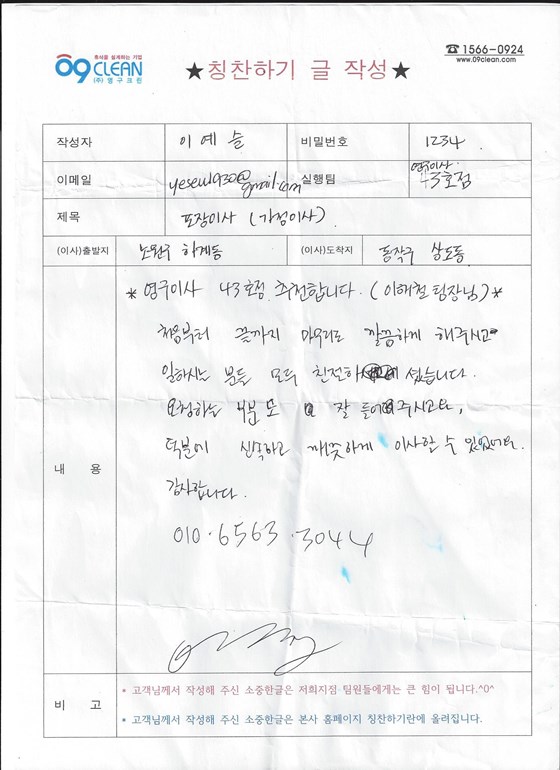 축쇄를 설계하는 기업
09 CLEAN
(주)영구크린
★칭찬하기 글 작성★
☎ 1566-0924
www.09clean.com
작성자 이예슬 비밀번호 1234
이메일 yeseul930@gmail.com 실행팀 영구이사 43호점
제목 포장이사 (가정이사)
(이사)출발지 노원구 하계동 (이사)도착지 동작구 상도동
*영구이사 43호점 추천합니다. (이해철 팀장님)*
처음부터 끝까지 마무리도 깔끔하게 해주시고
일하시는 분들 모두 친절하셨습니다.
요청하는 부분도 잘 들어주시고요,
덕분에 신속하고 깨끗하게 이사할 수 있었어요.
내 용
감사합니다.
010.6563.3044
비 고
* 고객님께서 작성해 주신 소중한글은 저희지점 팀원들에게는 큰 힘이 됩니다.^0^
* 고객님께서 작성해 주신 소중한글은 본사 홈페이지 칭찬하기란에 올려집니다.